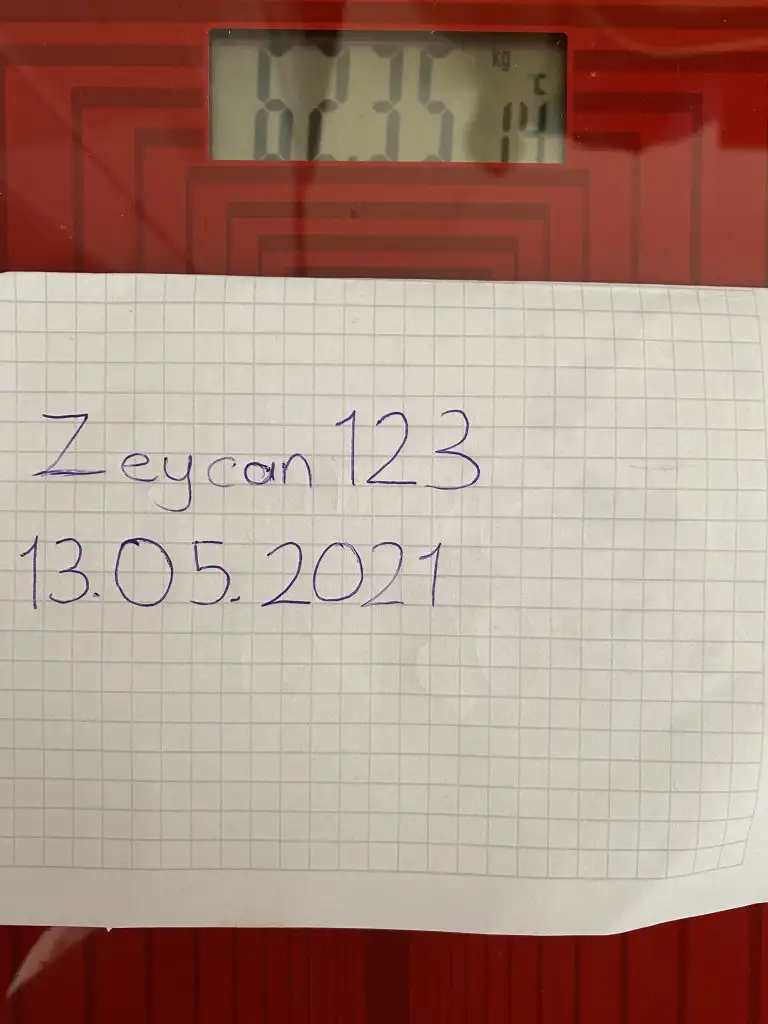 kg
°C
62.35 14
Zeycan 123
13.05.2021